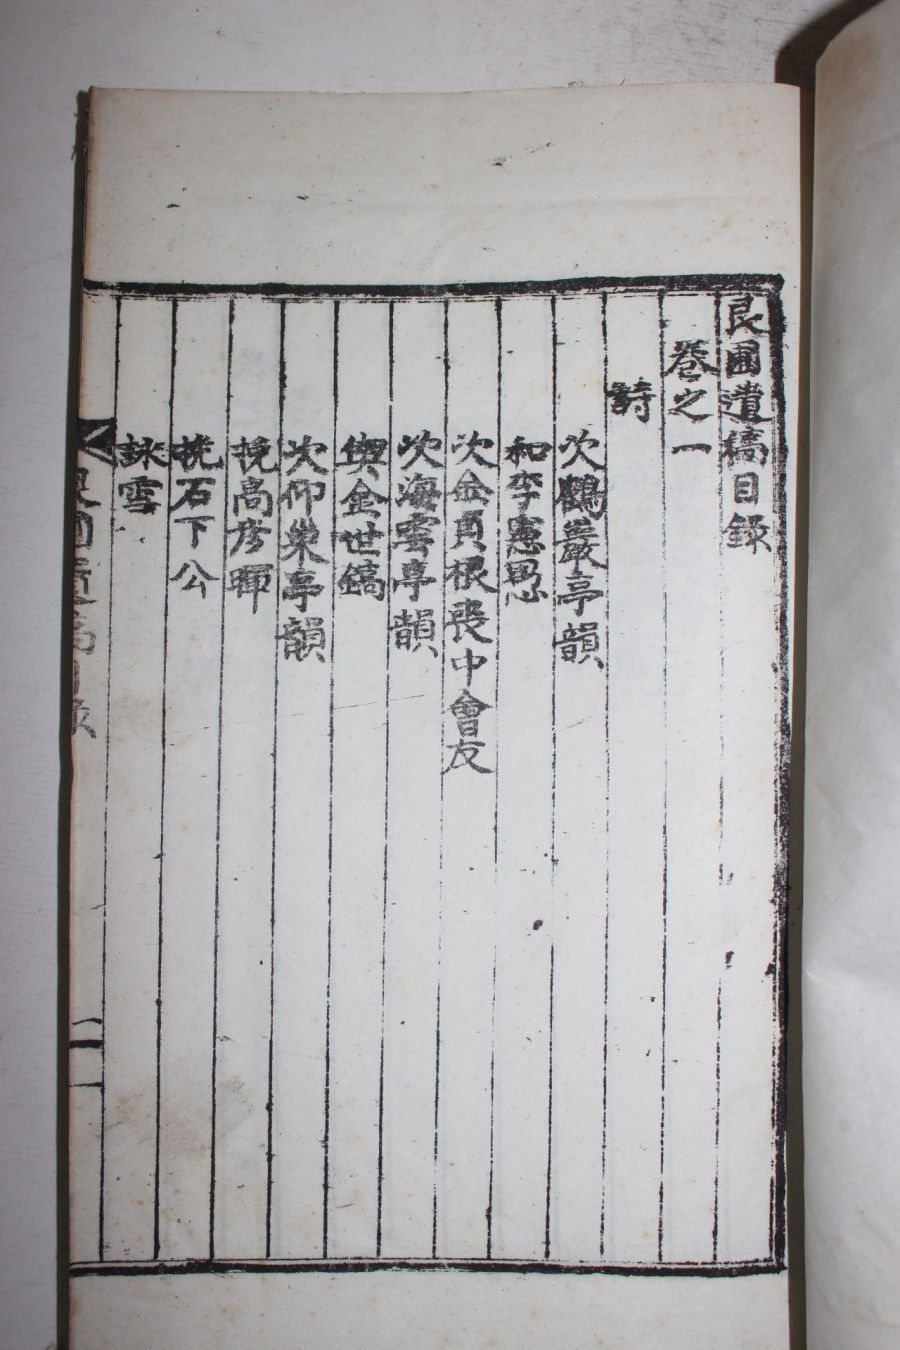 艮圃遺稿目錄
卷之一
詩
次鶴巖亭韻
和李憲思
次金貞根喪中會友
次海雲亭韻
與金世鎬
次仰巢亭韻
挽高彦暉
挽石下公
詠雪
艮圃遺稿目錄
一